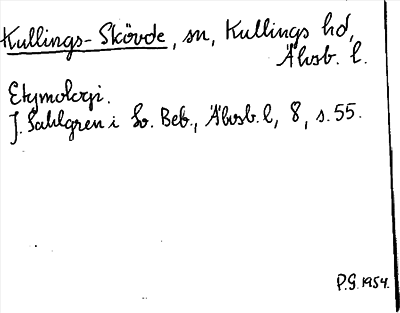 Kullings-Skövde, sn, Kullings hd,
Älvsb. l.
Etymologi.
J. Sahlgren i Sv. Beb., Älvsb. l, 8, s. 55.
P.G. 1954.